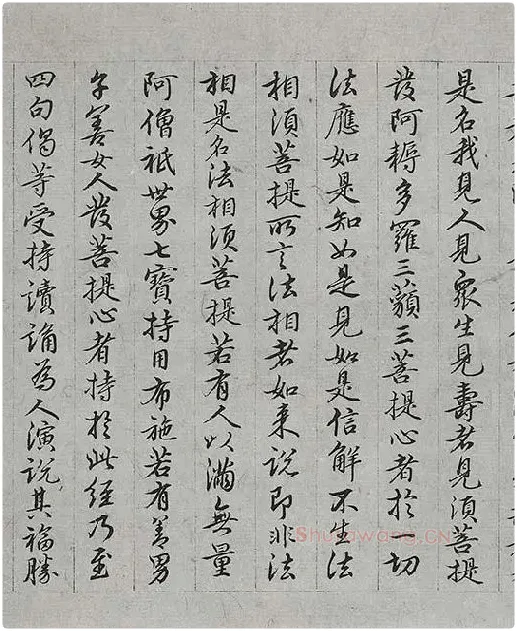 是名我見人見眾生見壽者見須菩提
發阿耨多羅三藐三菩提心者於一切
法應如是知如是見如是信解不生法
相須菩提所言法相者如来說即非法
相是名法相須菩提若有人以滿無量
阿僧祇世界七寶持用布施若有善男
子善女人發菩提心者持於此經乃至
四句偈等受持讀誦為人演說其福勝
Shufawang.CN